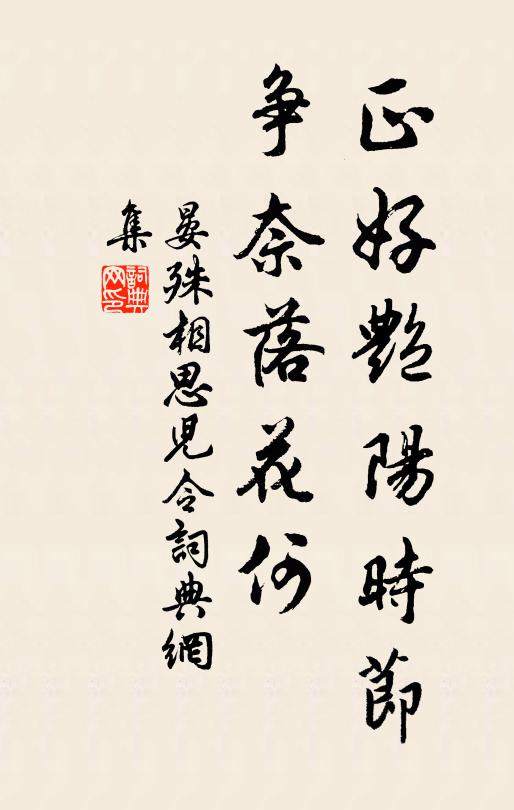 正好艷陽時節
争奈落花何
晏殊相思児令詞典網
集
詞典網印